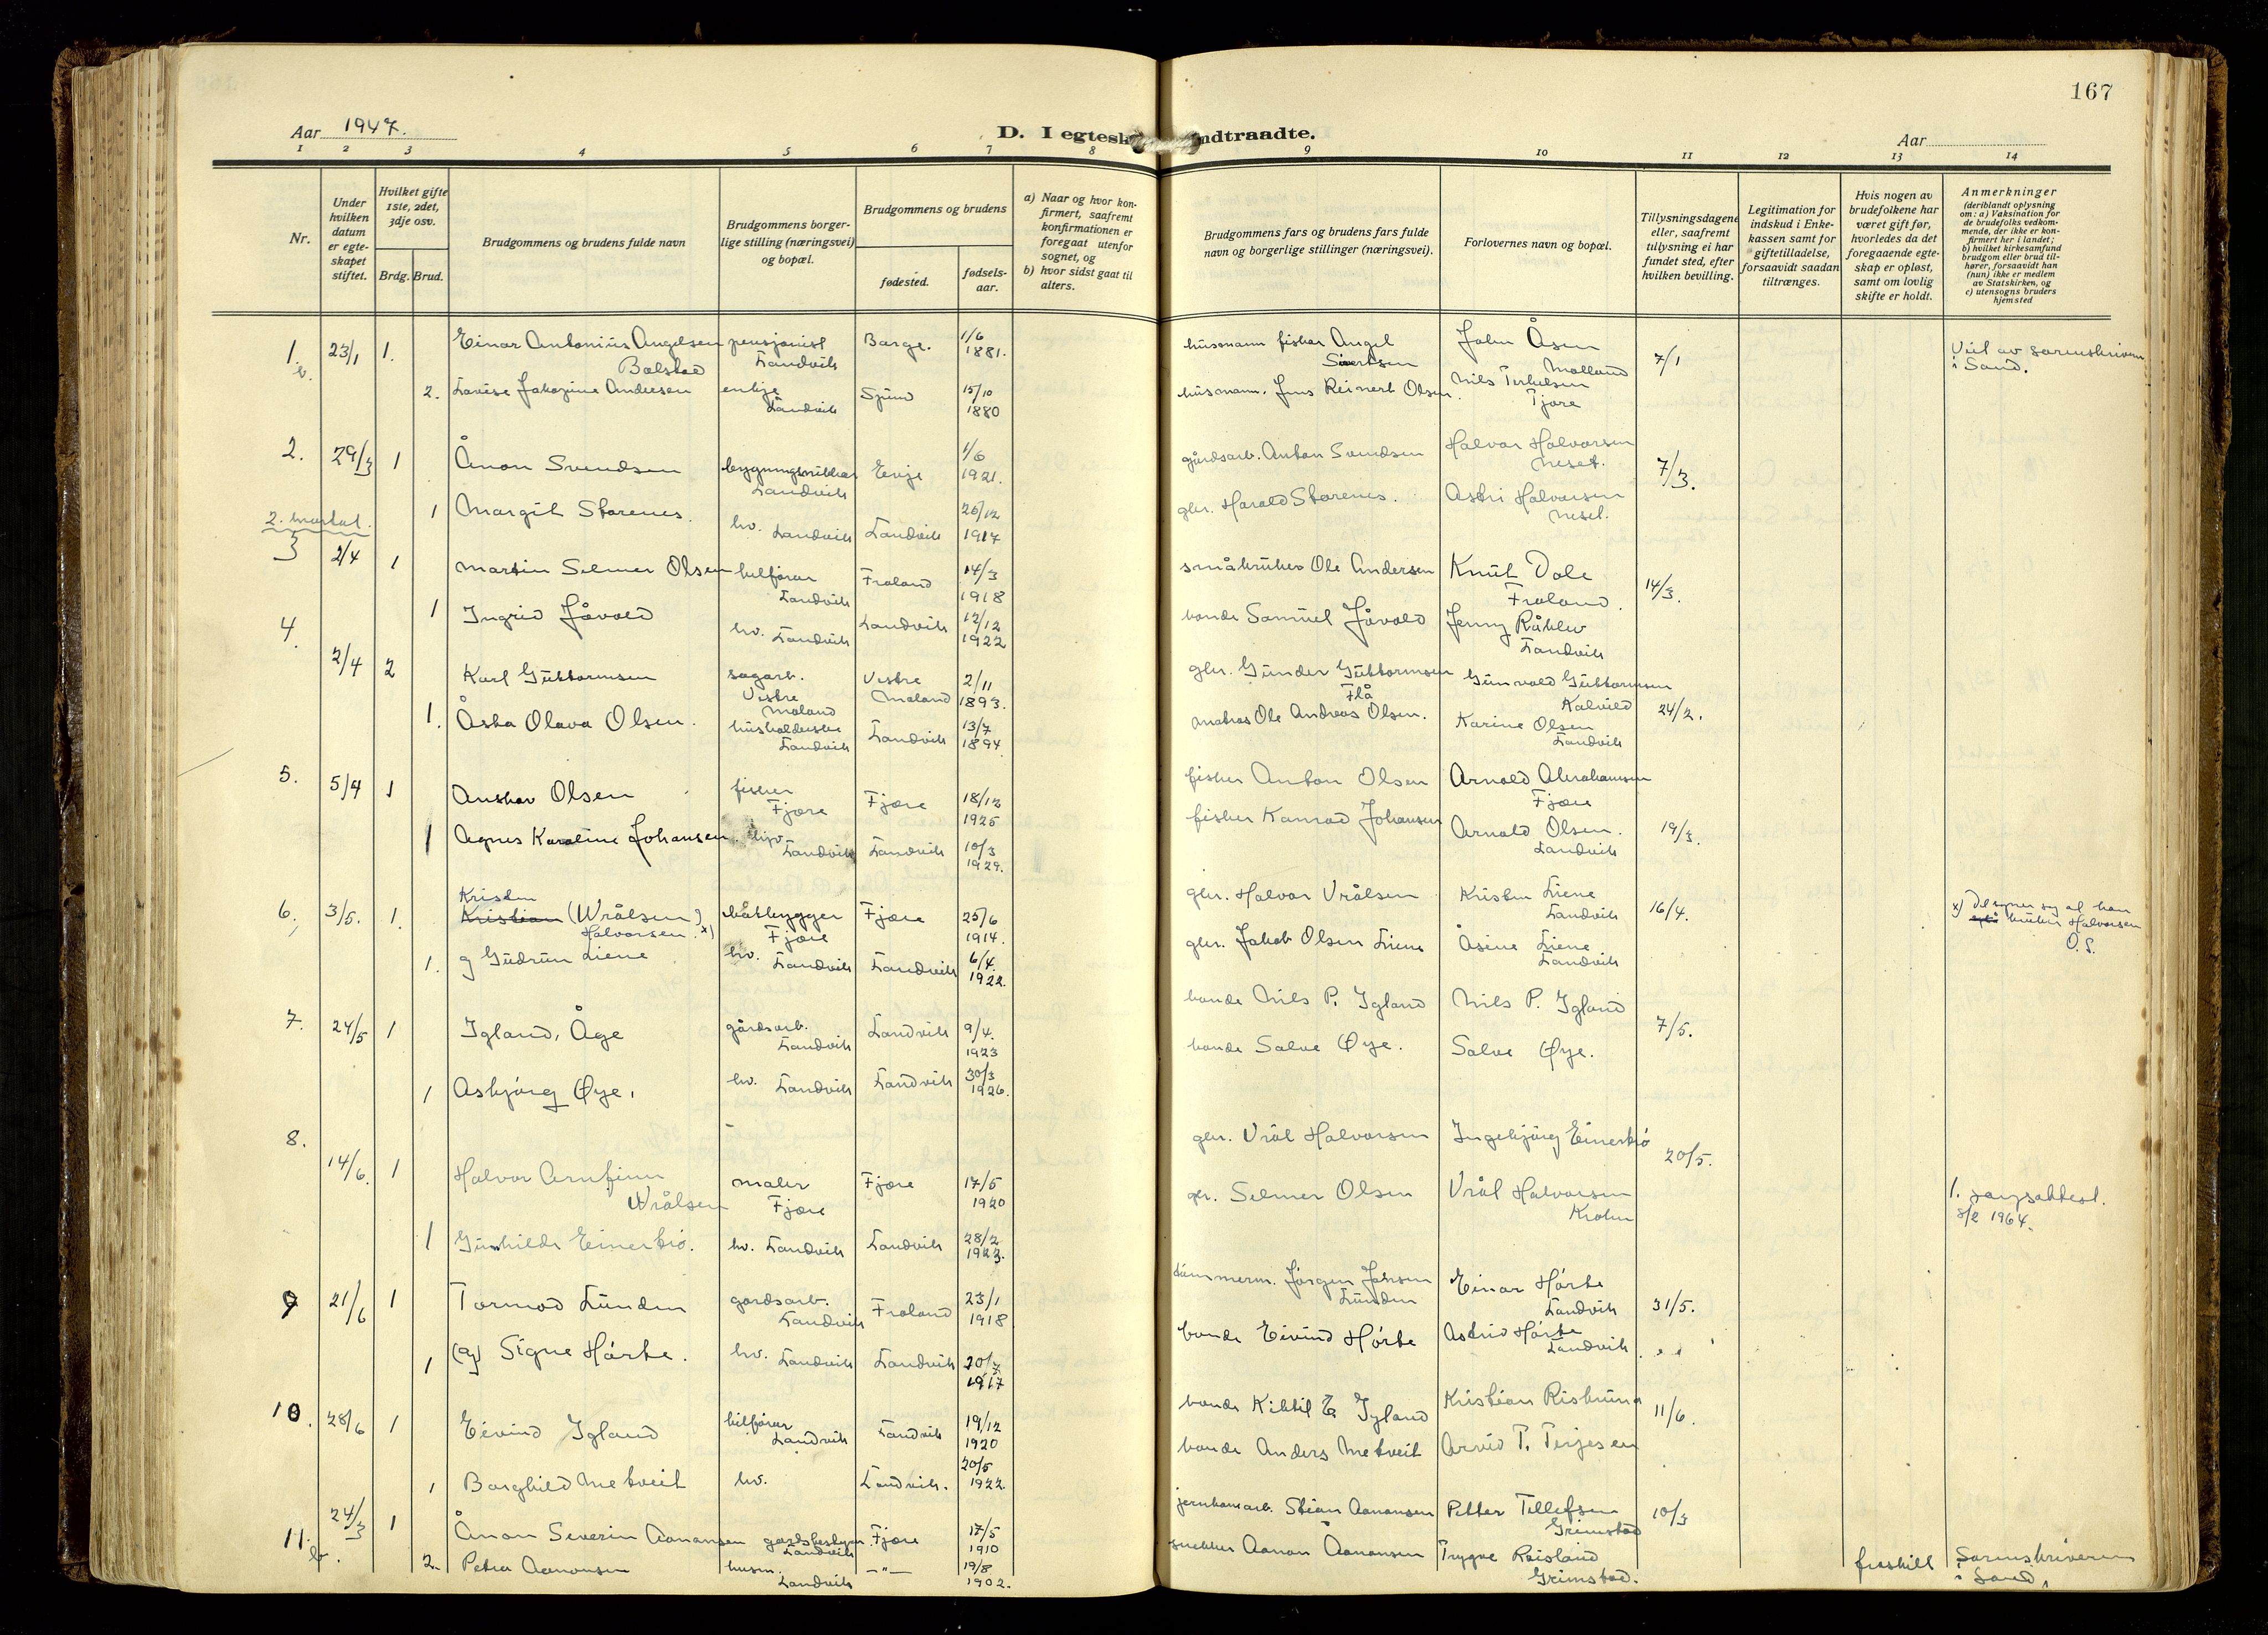 167
Aar 1947.
D. I egtesk
ndtraadte.
Aar
1 2 3 4 5 6 7 8 9 10 11 12 13 14
Nr.
Under hvilken datum er egte-skapet stiftet.
Hvilket gifte 1ste, 2det, 3dje osv.
Brdg. Brud.
Brudgommens og brudens fulde navn
Brudgommens borger-lige stilling (næringsvei) og bopæl.
Brudgommens og brudens
fødested.
fødsels-aar.
a) Naar og hvor kon-firmert, saafremt konfirmationen er foregaat utenfor sognet, og
b) hvor sidst gaat til alters.
Brudgommens fars og brudens fars fulde navn og borgerlige stillinger (næringsvei).
Forlovernes navn og bopæl.
Tillysningsdagene eller, saafremt tillysning ei har fundet sted, efter hvilken bevilling.
Legitimation for indskud i Enke-kassen samt for giftetilladelse, forsaavidt saadan tiltrænges.
Hvis nogen av brudefolkene har været gift før, hvorledes da det foregaaende egte-skap er opløst, samt om lovlig skifte er holdt.
Anmerkninger
(deriblandt oplysning om: a) Vaksination for de brudefolks vedkom-mende, der ikke er kon-firmert her i landet; b) hvilket kirkesamfund brudgom eller brud til-hører, forsaavidt han (hun) ikke er medlem av Statskirken, og c) utensogns bruders hjemsted
1. b. 23/1 1. Einar Antonius Angelsen Bolstad pensjonist Landvik Barge. 1/6 1881. husmann fisker Angel Sivertsen John Åsen Molland 7/1 Viet av sorenskriveren i Sand.
2. Lovise Jakozine Andersen enkje Landvik 15/10 1880 husmann. Jens Reinert Olsen. Nils Terkelsen Fjære
2. 29/3 1 Ånon Svendsen Landvik Evje 1/6 1921. gårdsarb. Anton Svendsen Halvor Halvorsen Neset. 7/3.
1 Margit Starenes. hv. Landvik Landvik 26/12 1917 gbr. Harald Starenes. Astri Halvorsen Neset.
3 2/4 1 Martin Selmer Olsen bilfører Landvik Froland 14/3 1918 småbruker Ole Andersen Knut Dale Froland. 14/3.
1 Ingrid Jåvold hv. Landvik Landvik 12/12 1922 bonde Samuel Jåvold Jenny Landvik
4. 2/4 2 Karl Guttormsen sagarb. Vestre Moland Vestre Moland 2/11 1893. gbr. Gunder Guttormsen Flå Gunvald Guttormsen Kalvild 24/2.
1. Åsta Olava Olsen. husholderske Landvik Landvik 13/7 1894 matros Ole Andreas Olsen. Karine Olsen Landvik
5. 5/4 1 Anskar Olsen fisker Fjære Fjære 18/12 1925 fisker Anton Olsen Arnold Abrahamsen Fjære 19/3.
1 Agnes Karoline Johansen. Landvik Landvik 10/3 1929. fisker Konrad Johansen Arnold Olsen. Landvik
6. 3/5. 1. Kristen Kristian (Wrålsen) Halvorsen. x) båtbygger Fjære Fjære 25/6 1914. gbr. Halvor Vrålsen Kristen Liene Landvik 16/4. x) Det synes og at han bruker Halvorsen O.S.
1. g Gudrun Liene hv. Landvik Landvik 6/4. 1922. gbr. Jakob Olsen Liene Åsine Liene Landvik
7. 24/5 1 Igland, Åge gårdsarb. Landvik Landvik 9/4. 1923 bonde Nils P. Igland Nils P. Igland 7/5.
1 Asbjørg Øye. hv. Landvik Landvik 30/3 1926. bonde Salve Øye. Salve Øye.
8. 14/6. 1 Halvor Arnfinn Wrålsen maler Fjære Fjære 17/5 1920 gbr. Vrål Halvorsen Ingebjørg Einerkiø 20/5.
1 Gunhilde Einerkiø. hv. Landvik Landvik 28/2 1923. gbr. Selmer Olsen Vrål Halvorsen 8/2 1964.
9 21/6 1 Tormod Lunden gardsarb. Landvik Froland 23/1 1918 tømmerm. Jørgen Jensen Lunden Einar Hørte Landvik 31/5.
1 (g) Signe Hørte. hv. Landvik Landvik 20/7 1917 bonde Eivind Hørte Astrid Hørte Landvik
10. 28/6 1 Eivind Igland bilfører Landvik Landvik 19/12 1920 bonde Kittil E. Igland 11/6.
1 Borghild Metveit hv. Landvik. 20/5 1922. bonde Anders Metveit Arvid T. Terjesen
11. b. 24/3 1 Ånon Severin Aanonsen gardsbestyrer Landvik Fjære 17/5 1910 Stian Aanonsen Petter Tellefsen Grimstad 10/3
2. Petra Aanonsen husm. Landvik —"— 19/8 1902. snekker Aanon Aanonsen Trygve Roisland Grimstad. fraskilt Sorenskriveren i Sand.
2. mortal.